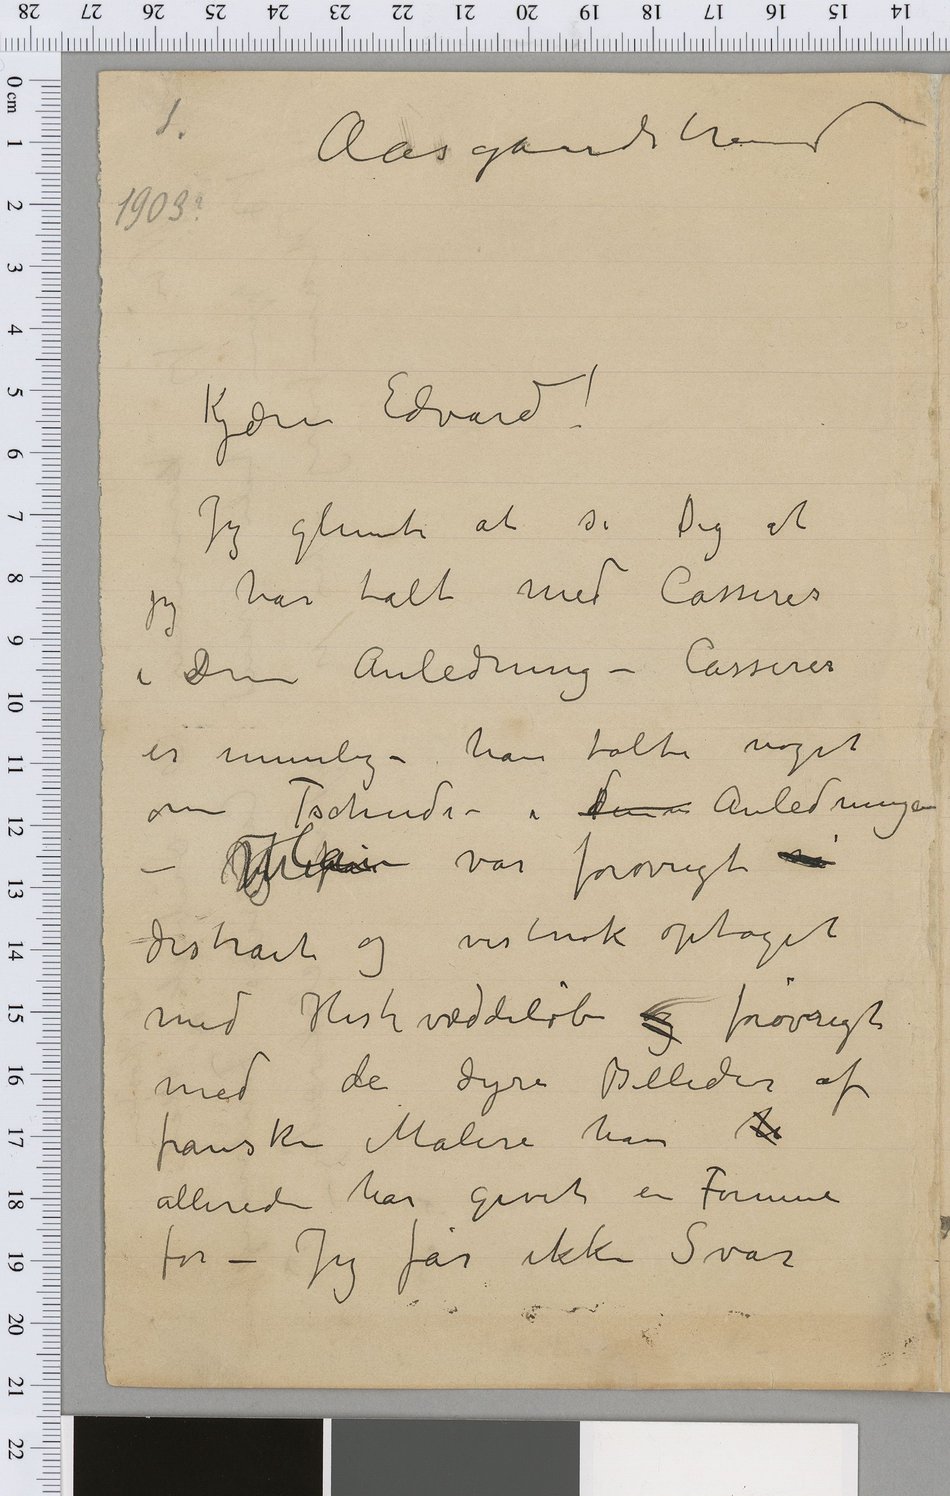 1.
Aasgaardstrand
1903?
Kjære Edvard!
Jeg glemte at si Dig at
jeg har talt med Cassirer
i Anledning – Cassirer
er rimelig – han talte noget
om Tschudi – i denne Anledningen
– var forøvrigt så
distrait og vistnok optaget
med Hestevæddeløb og forøvrigt
med de dyre Billeder af
franske Malere han h
allerede har givet en Formue
for – Jeg får ikke Svar
0 cm 1 2 3 4 5 6 7 8 9 10 11 12 13 14 15 16 17 18 19 20 21 22
28 27 26 25 24 23 22 21 20 19 18 17 16 15 14